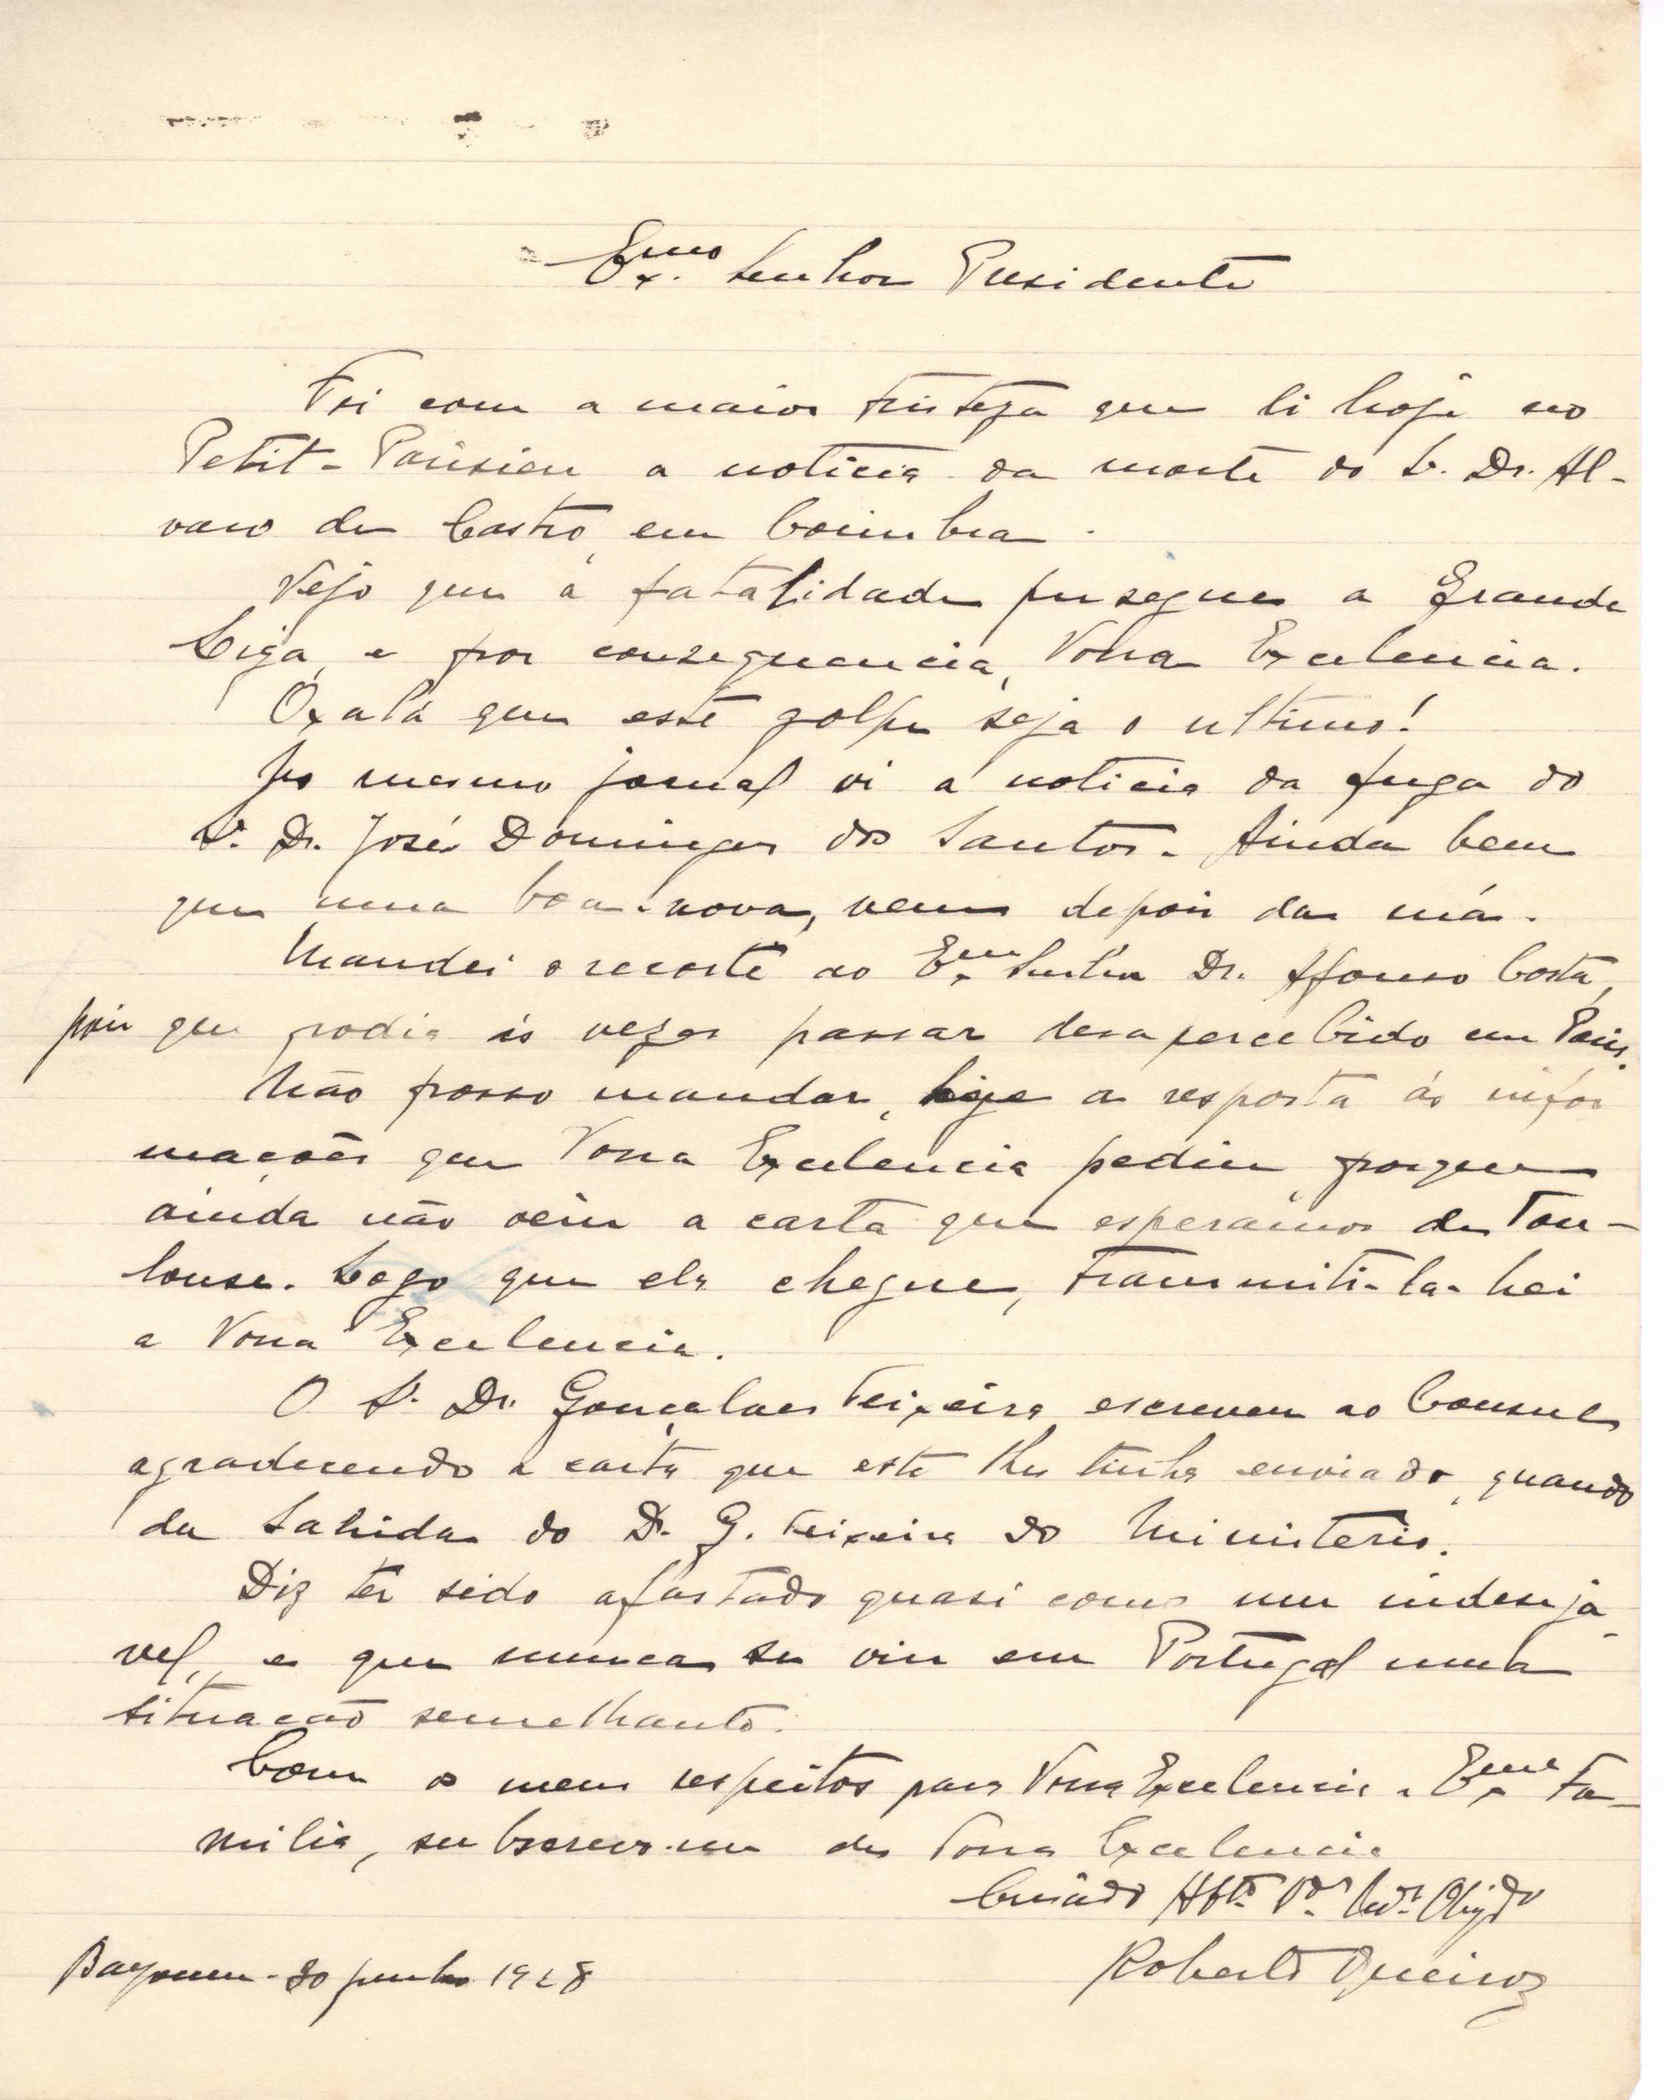 Exmo. Senhor Presidente
Foi com a maior tristeza que li hoje no
Petit-Parisien a noticia da morte do Sr. Dr. Al-
varo de Castro, em Coimbra.
Vejo que a fatalidade persegue a Grande
Liga, e por consequencia, Vossa Excelencia.
Oxalá que este golpe seja o ultimo!
No mesmo jornal vi a noticia da fuga do
Sr. Dr. José Domingos dos Santos. Ainda bem
que uma boa nova, vem depois da má.
Mandei o recorte ao Exmo. Senhor Dr. Afonso Costa,
pois que podia ás vezes passar desapercebido em Paris.
Não posso mandar, hoje a resposta ás infor
mações que Vossa Excelencia pediu, porque
ainda não veiu a carta que esperamos de Tou-
louse. Logo que ela chegue, transmiti-la-hei
a Vossa Excelencia.
O Sr. Dr. Gonçalves Teixeira escreveu ao Consul
agradecendo a carta que este lhe tinha enviado, quando
da sahida do Dr. G. Teixeira do Ministerio.
Diz ter sido afastado quasi como um indesejá-
vel, e que nunca se viu em Portugal uma
situação semelhante.
Com os meus respeitos para Vossa Excelencia e Exma. Fa-
milia, subscrevo-me de Vossa Excelencia
Criado Atto. Vor. Obrigdo
Roberto Queiroz
Bayonne - 30 junho 1928